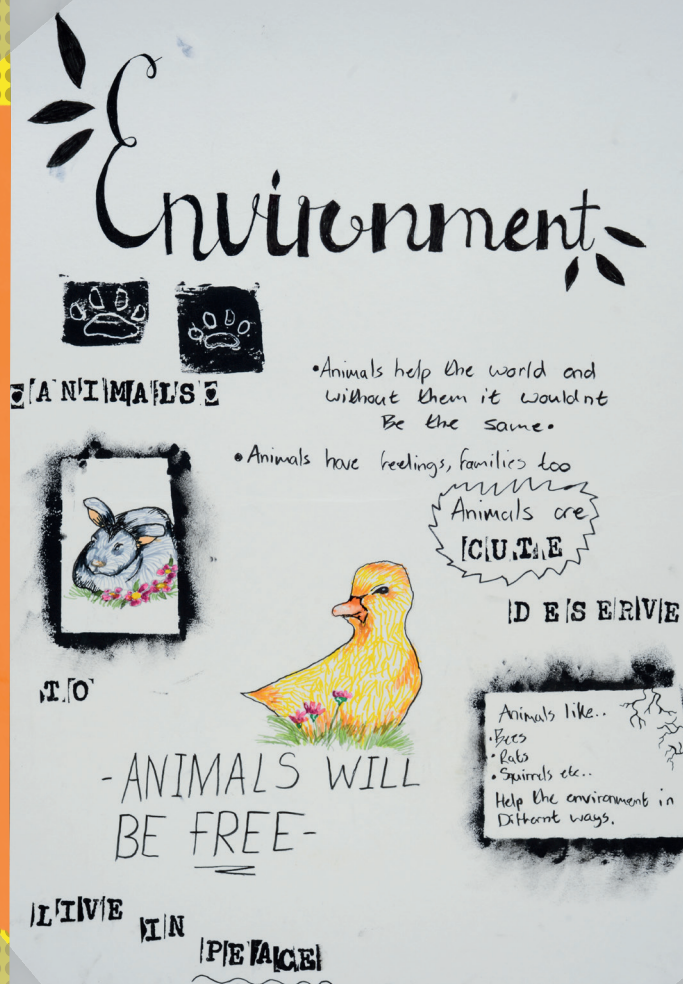 Environment
ANIMALS
•Animals help the world and
without them it wouldnt
Be the same.
•Animals have feelings, families too
Animals are
CUTE
DESERVE
TO
Animals like..
•Bees
•Rats
•Squirrels etc..
Help the environment in
Different ways.
-ANIMALS WILL
BE FREE-
LIVE IN
PEACE